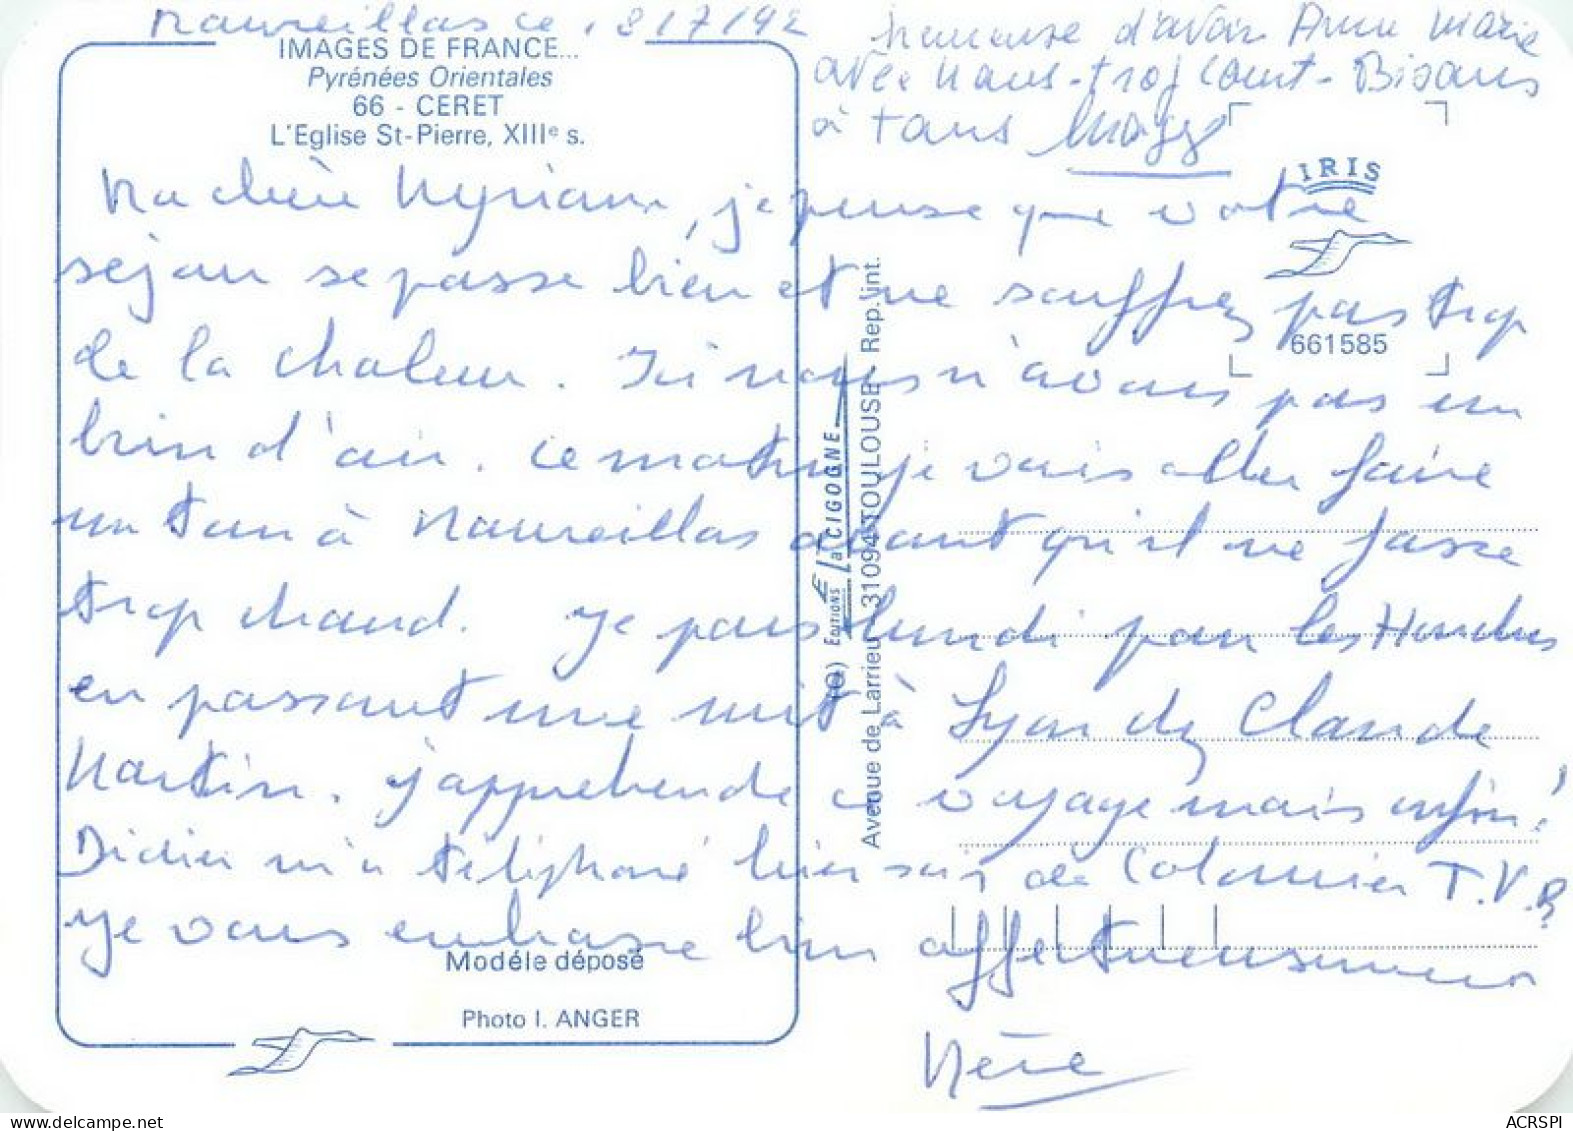 Maureillas ce 18/7/92
heureuse d'avoir Anne Marie
avec nous - trop court - Bisous
à tous Maggy
IMAGES DE FRANCE...
Pyrénées Orientales
66 - CERET
L'Eglise St-Pierre, XIIIe s.
IRIS
661585
Ma chère Myriam, je pense que votre
séjour se passe bien et ne souffrez pas trop
de la chaleur. Ici nous n'avons pas un
brin d'air. Ce matin je vais aller faire
un tour à Maureillas avant qu'il ne fasse
trop chaud. Je pars lundi pour les
en passant une nuit à Lyon chez Claude
Martin. J'appréhende ce voyage mais enfin!
Didier m'a téléphoné hier soir de Colomiers T.V.B
Je vous embrasse bien affectueusement
Mère
EDITIONS La CIGOGNE
Avenue de Larrieu 31094 TOULOUSE Rep. int.
Modéle déposé
Photo I. ANGER
ACRSPI